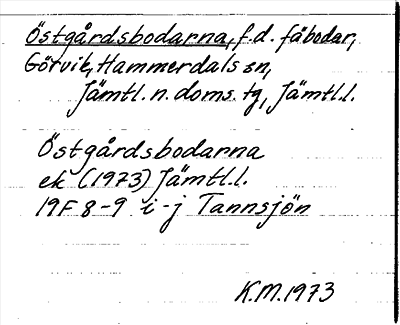 Östgårdsbodarna, f.d. fäbodar,
Görvik, Hammerdals sn,
Jämtl. n. doms. tg, Jämtl.l.
Östgårdsbodarna
ek (1973) Jämtl.l.
19F 8-9 i-j Tannsjön
K.M.1973